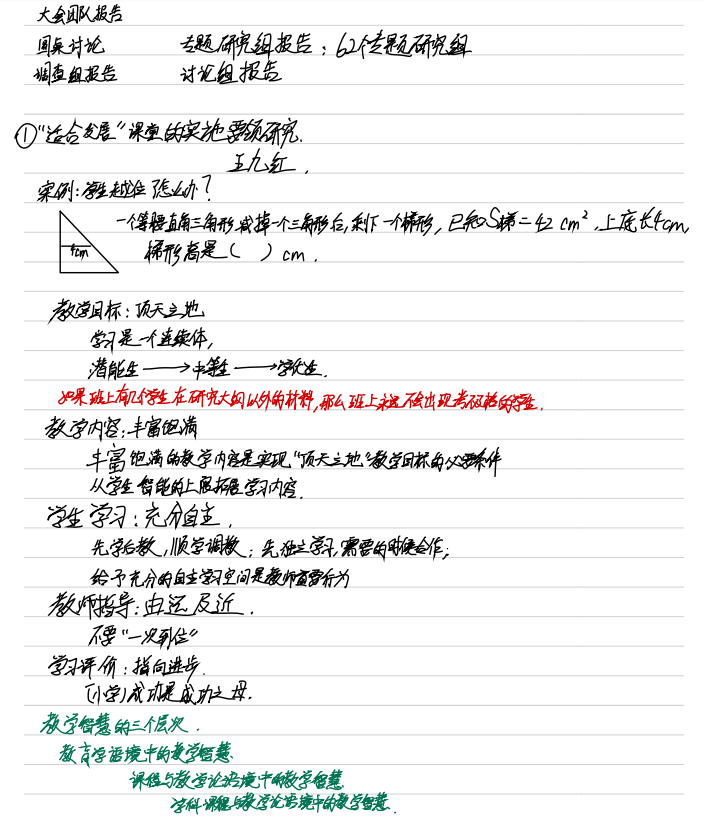 大会团队报告
圆桌讨论 专题研究组报告：62个专题研究组
调查组报告 讨论组报告
①“适合发展”课堂的实施要领研究.
王九红.
案例：学生越位怎么办？
一个等腰直角三角形截掉一个三角形后，剩下一个梯形，已知S梯=42 cm²，上底长4cm,
4cm
梯形高是（ ）cm.
教学目标：顶天立地
学习是一个连续体，
潜能生→中等生→学优生.
如果班上有几个学生在研究大纲以外的材料，那么班上永远不会出现考不及格的学生.
教学内容：丰富饱满
丰富饱满的教学内容是实现“顶天立地”教学目标的必要条件
从学生智能的上限拓展学习内容.
学生学习：充分自主.
先学后教，顺学调教；先独立学习，需要的时候合作；
给予充分的自主学习空间是教师首要行为
教师指导：由远及近.
不要“一次到位”
学习评价：指向进步.
(小学)成功是成功之母.
教学智慧的三个层次.
教育学语境中的教学智慧
课程与教学论语境中的教学智慧
学科课程与教学论语境中的教学智慧.